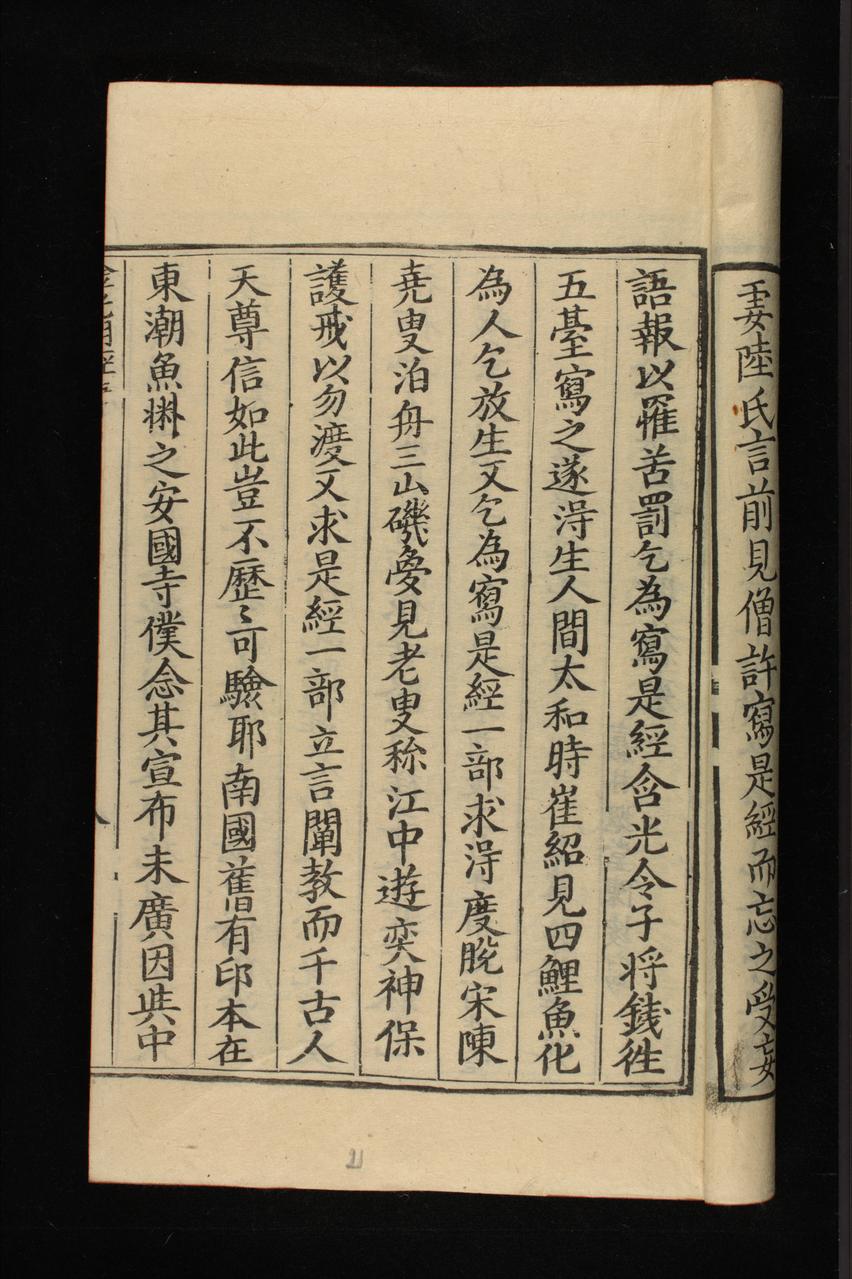 妻陸氏言前見僧許寫是經而忘之受妄
語報以罹苦罰乞為寫是經含光令子将錢徃
五臺寫之遂淂生人間太和時崔紹見四鯉魚化
為人乞放生又乞為寫是經一部求淂度脫宋陳
尭叟泊舟三山磯夢見老叟称江中遊奕神保
護戒以勿渡又求是經一部立言闡教而千古人
天尊信如此豈不歷〻可驗耶南國舊有印本在
東潮魚㭰之安國寺僕念其宣布未廣因與中